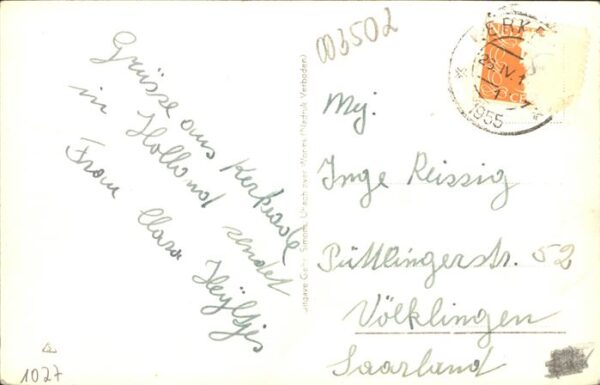 Grüsse aus Kerkrade
in Holland sendet
Frau Clara Heyltjes
1027
003502
Uitgave Gebr. Simons, Ubach over Worms (Nadruk Verboden)
KERK
25.IV.1
1955
10
Mej.
Inge Reissig
Püttlingerstr. 52
Völklingen
Saarland